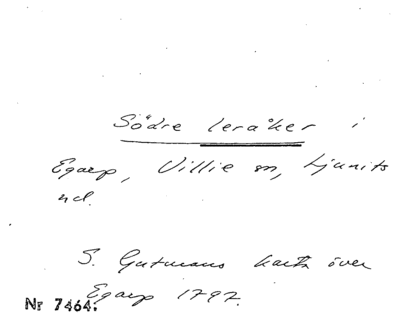 Södre leråker i
Egarp, Villie sn, Ljunits
hd.
S. Gutmans karta över
Egarp 1797.
Nr 7464.